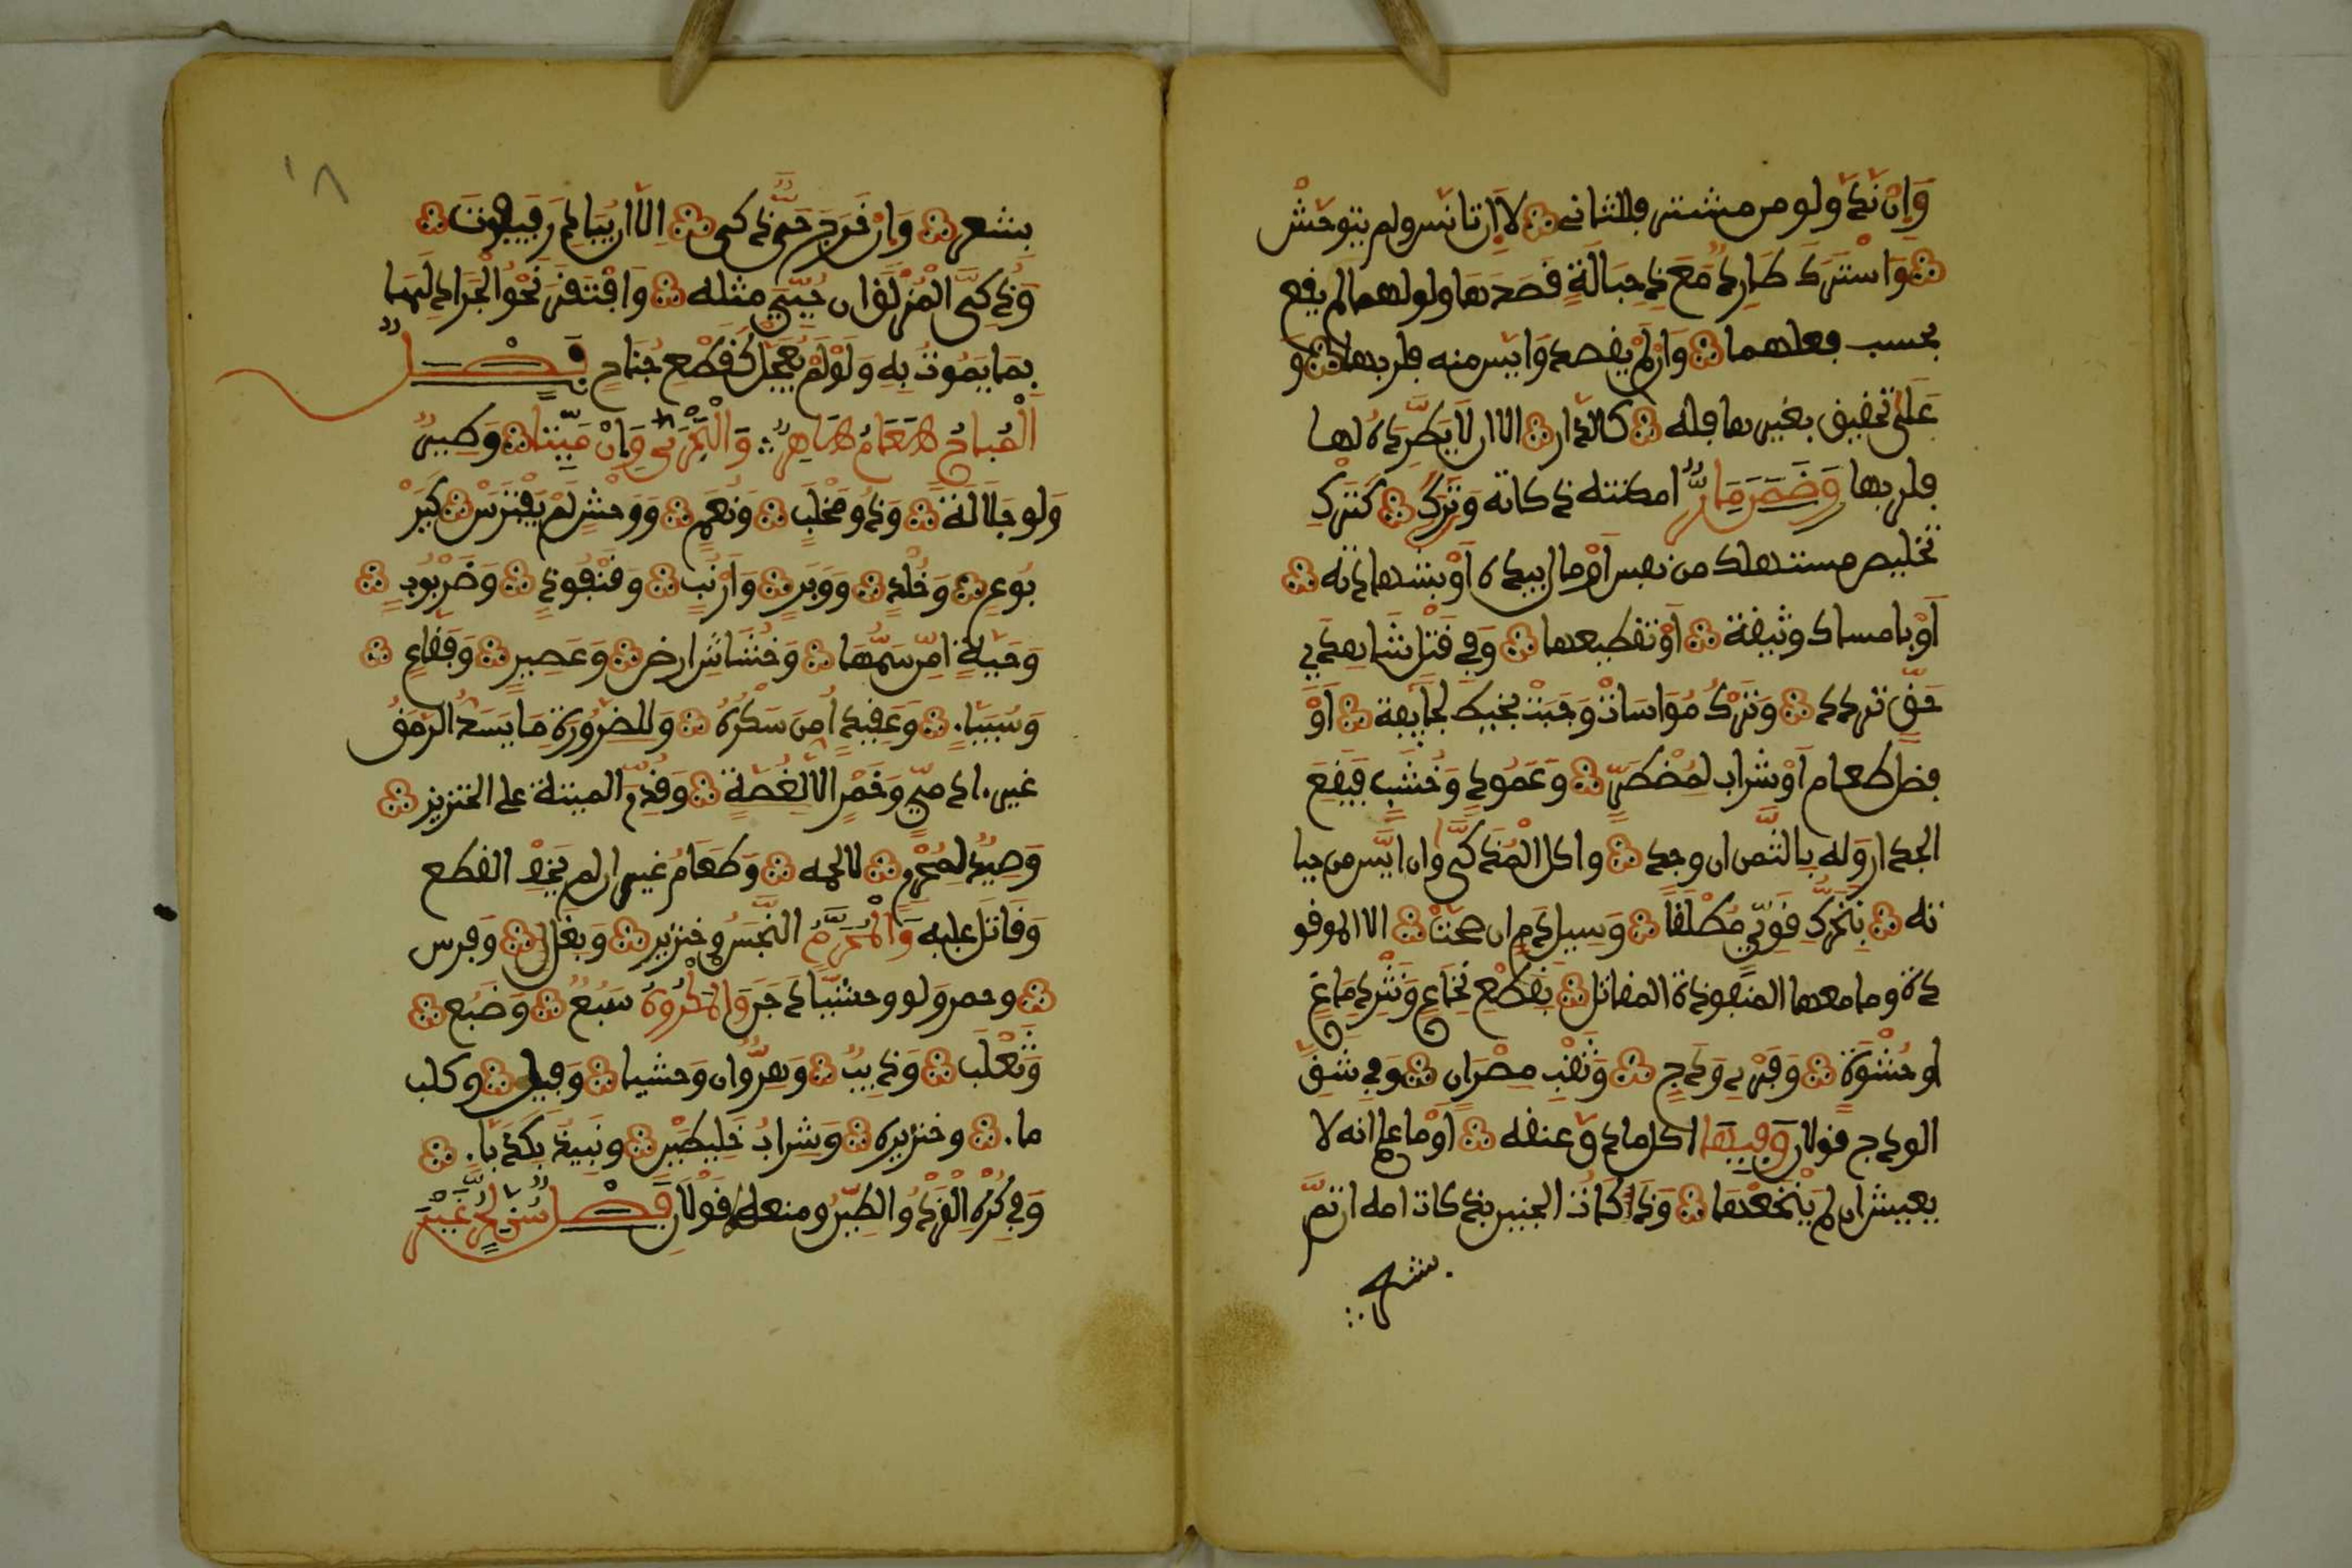 وَإِن نَدَّ ولو من مشتر فللثاني لا إن تأنس ولم يتوحش
وَاشترك طارد مع ذي حبالة قصدها ولولاهما لم يقع
بحسب فعلهما وَإن لم يقصد وأيس منه فلربها و
على تحقيق بغيرها فله كالدار الا ان لا يطرده لها
فلربها وضمن مار امكنته ذكاته وترك كترك
تخليص مستهلك من نفس أو مال بيده أو بشهادته
أو بامساك وثيقة أو تقطيعها وفي قتل شاهدي
حق تردد وترك مواسات وجبت بخيط لجائفة أو
فضل طعام أو شراب لمضطر وعمود وخشب فيقع
الجدار وله بالثمن ان وجد واكل المذكى وان ايس من حيا
ته بتحرك قوي مطلقا وسيل دم ان صحت الا الموقو
ذة وما معها المنفوذة المقاتل بقطع نخاع ونثر دماغ
او حشوة وفري ودج وثقب مصران وفي شق
الودج قولان وفيها اكل ما دق عنقه أو ما علم انه لا
يعيش ان لم ينخعها وذكات الجنين بذكات امه ان تم
بشعر
١٨
بشعر وَإن خرج حي ذكي الا ان يبادر فيفوت
وذكي المزلق ان حيي مثله وافتقر نحو الجراد لها
بما يموت به ولو لم يعجل كقطع جناح فصل
المباح طعام طاهر والبحري وان ميتا وطير
ولو جلالة وذو مخلب ونعم ووحش لم يفترس كير
بوع وخلد ووبر وأرنب وقنفوذ وضربوب
وحية امن سمها وخشاش ارض وعصير وفقاع
وسبيا. وعقيد امن سكره وللضرورة ما يسد الرمق
غير. ادمي وخمر الا لغصة وقدم الميتة على الخنزير
وصيد لمحرم لا لحمه وطعام غير ان لم يخف القطع
وقاتل عليه والمحرم النجس وخنزير وبغل وفرس
وحمر ولو وحشيا دجن والمكروه سبع وضبع
وثعلب وذيب وهر وان وحشيا وفيل وكلب
ما. وخنزيره وشراب خليطين ونبيذ بكدبا.
وفي كره القرد والطين ومنعه قولان فصل سن لحر غير